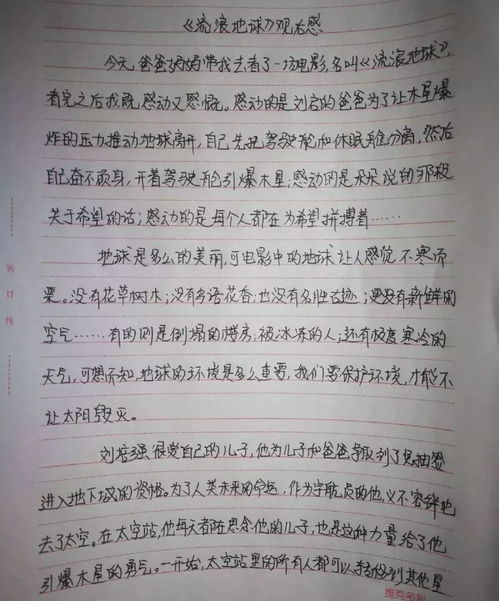 《流浪地球》观后感
今天,爸爸妈妈带我去看了一场电影,名叫《流浪地球》,
看完之后我既感动又感慨。感动的是刘启的爸爸为了让木星爆
炸的压力推动地球离开,自己先把驾驶舱和休眠舱分离,然后
自己奋不顾身,开着驾驶舱引爆木星;感动的是朵朵说的那段
关于希望的话;感动的是每个人都在为希望拼搏着……
地球是多么的美丽,可电影中的地球让人感觉不寒而
栗。没有花草树木;没有鸟语花香;也没有名胜古迹;更没有新鲜的
空气……有的则是倒塌的楼房;被冰冻的人;还有极度寒冷的
天气,可想而知,地球的环境是多么重要,我们要保护环境,才能不
让太阳毁灭。
刘培强很爱自己的儿子,他为儿子和爸爸争取到了免抽签
进入地下城的资格。为了人类未来的命运,作为宇航员的他,义不容辞地
去了太空。在太空站,他每天都在思念他的儿子,也是这种力量给了他
引爆木星的勇气。一开始,太空站里的所有人都可以转移到其他星
装订线
维克多利